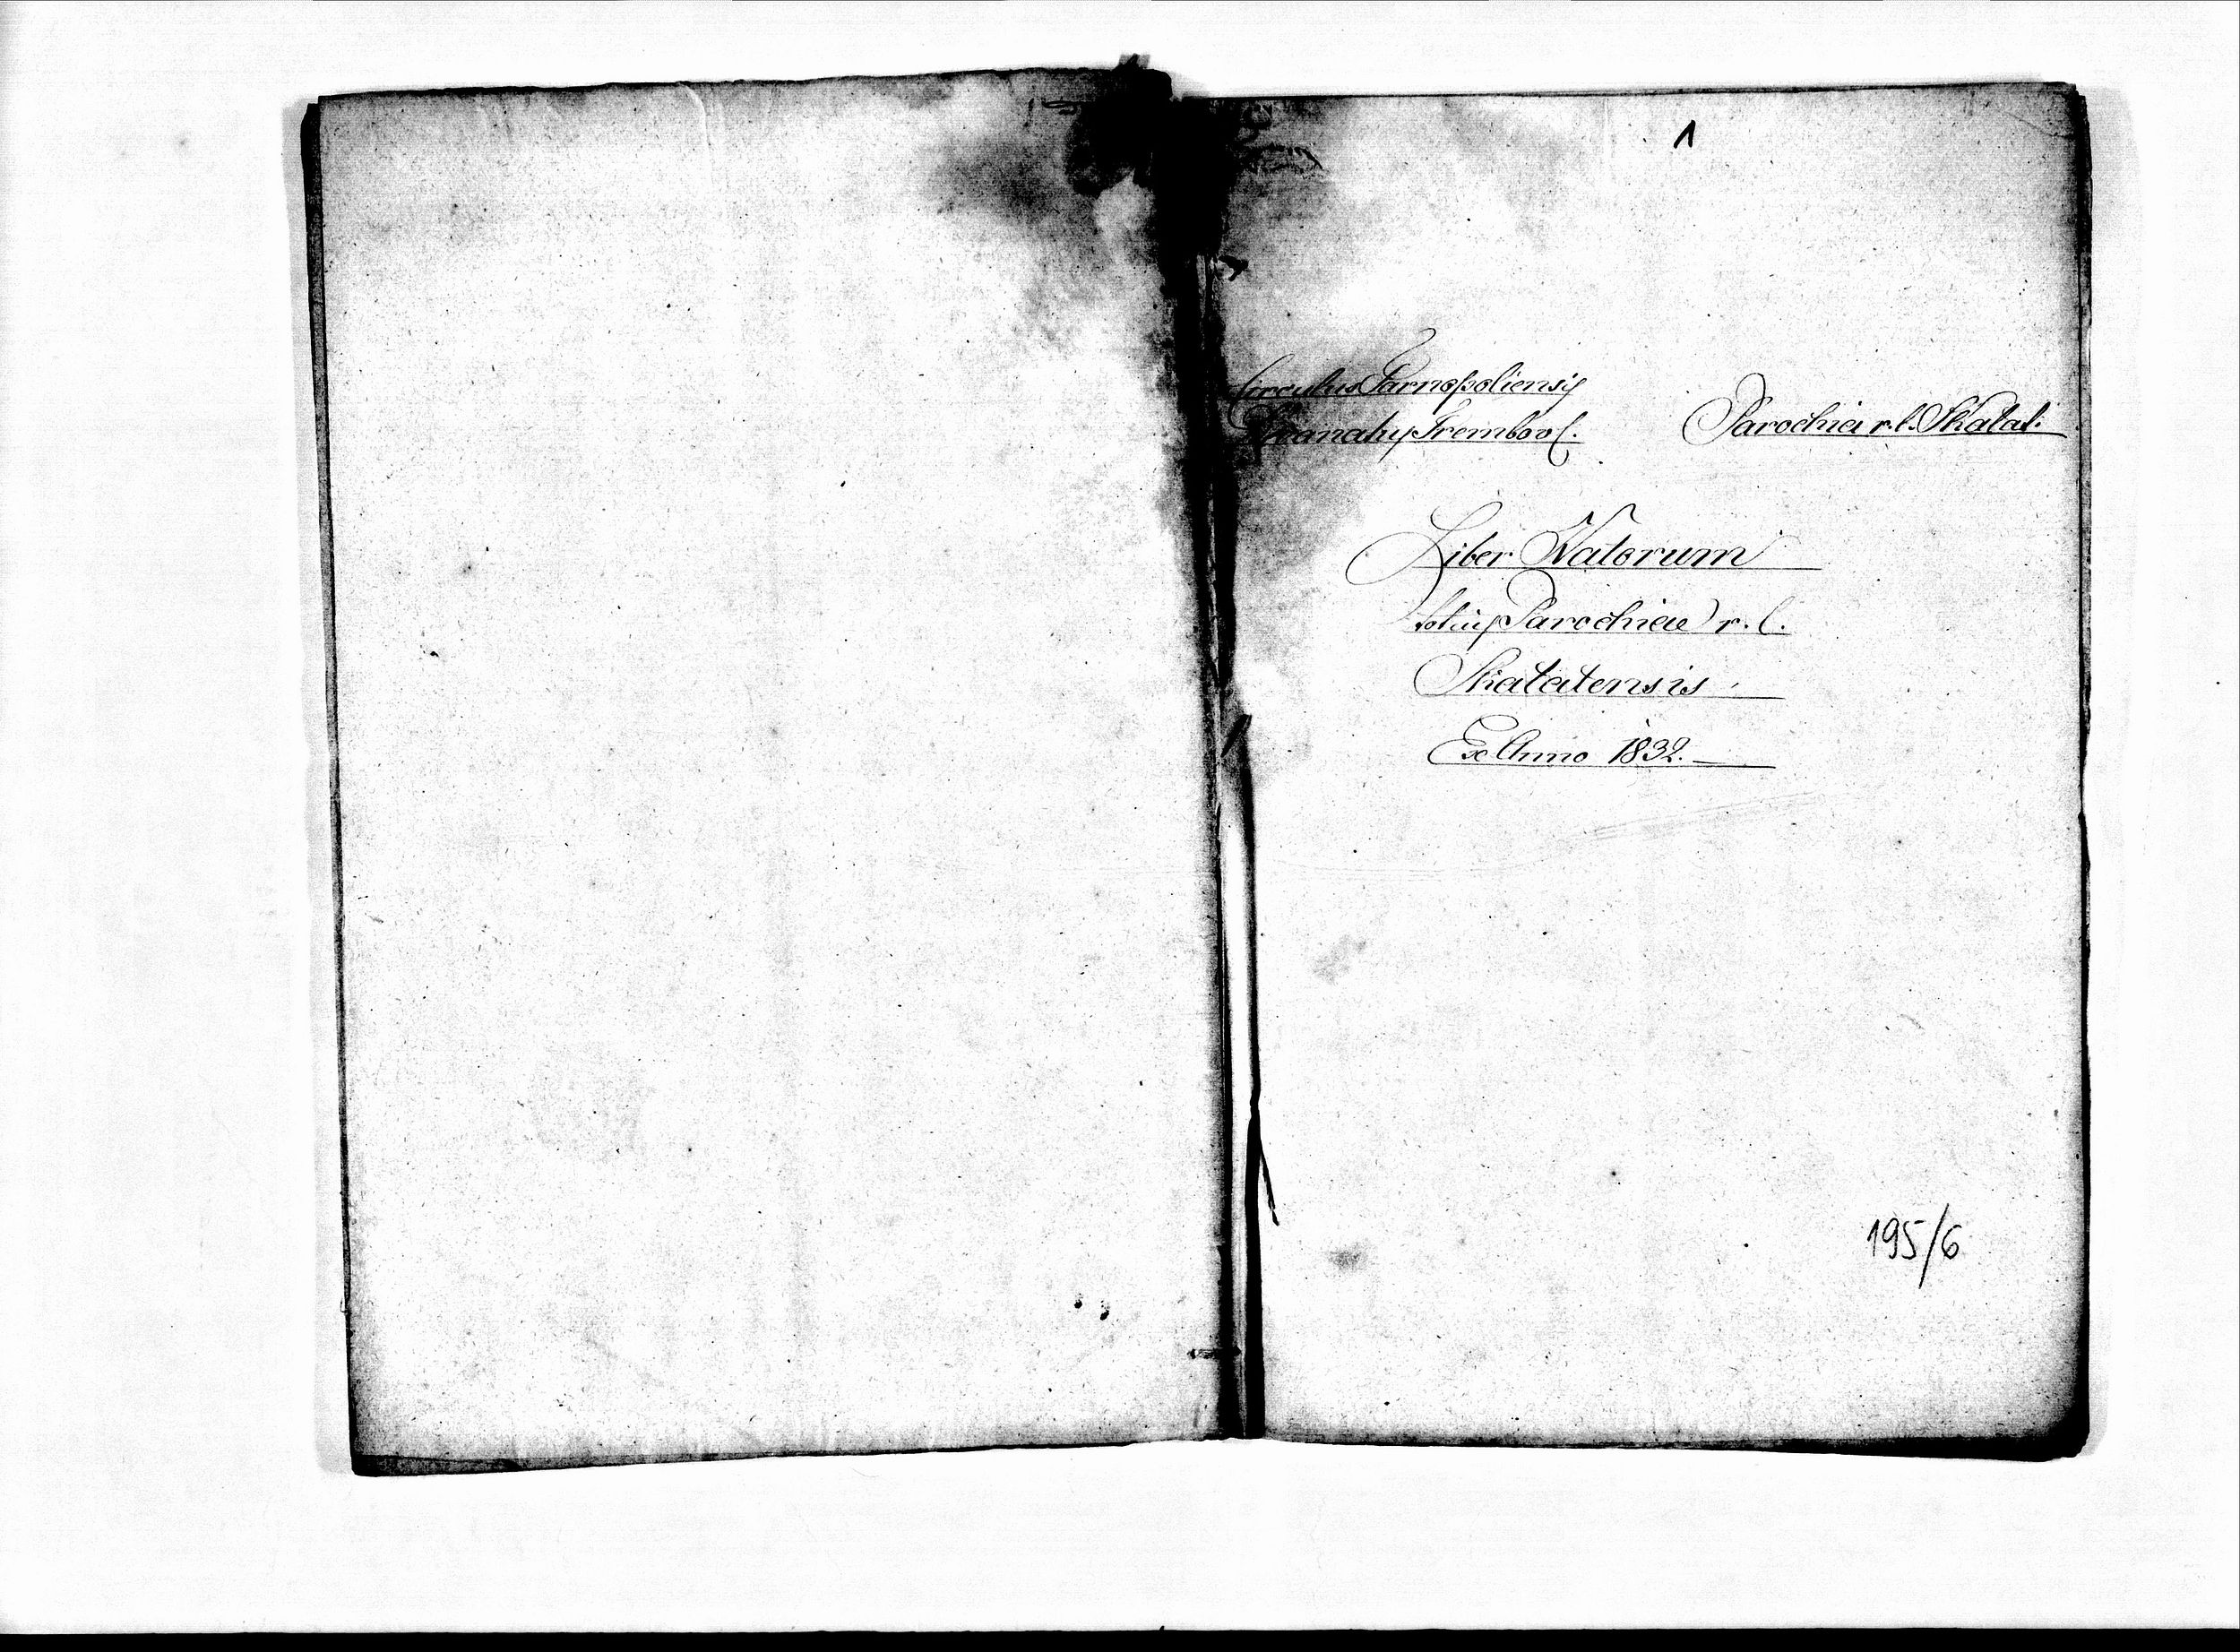 1
Circulus Tarnopoliensis
Decanatus Trembovl.
Parochia r. l. Skalat.
Liber Natorum
totius Parochiae r. l.
Skalatensis
Ex Anno 1832.
195/6